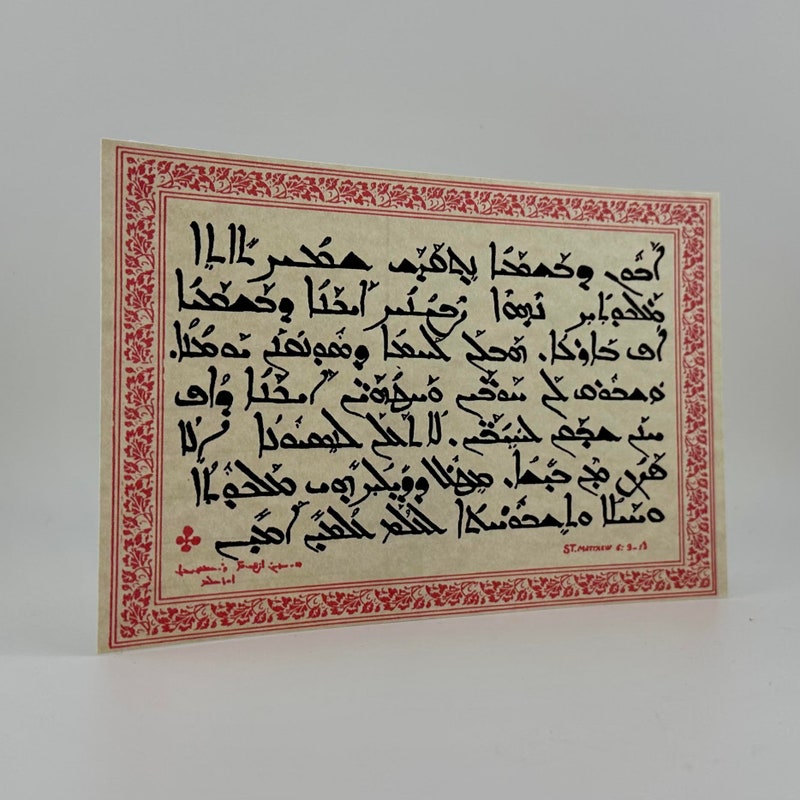 ܐܰܒܽܘܢ ܕܒܰܫܡܰܝܳܐ ܢܶܬܩܰܕܰܫ ܫܡܳܟ ܬܺܐܬܶܐ
ܡܰܠܟܽܘܬܳܟ ܢܶܗܘܶܐ ܨܶܒܝܳܢܳܟ ܐܰܝܟܰܢܳܐ ܕܒܰܫܡܰܝܳܐ
ܐܳܦ ܒܰܐܪܥܳܐ. ܗܰܒܠܰܢ ܠܰܚܡܳܐ ܕܣܽܘܢܩܳܢܰܢ ܝܰܘܡܳܢܳܐ.
ܘܰܫܒܽܘܩ ܠܰܢ ܚܰܘܒܰܝܢ ܘܰܚܛܳܗܰܝܢ ܐܰܝܟܰܢܳܐ ܕܳܐܦ
ܚܢܰܢ ܫܒܰܩܢ ܠܚܰܝܳܒܰܝܢ. ܠܳܐ ܬܰܥܠܰܢ ܠܢܶܣܝܽܘܢܳܐ ܐܶܠܳܐ
ܦܰܨܳܢ ܡܶܢ ܒܺܝܫܳܐ. ܡܶܛܽܠ ܕܕܺܝܠܳܟ ܗܝ ܡܰܠܟܽܘܬܳܐ
ܘܚܰܝܠܳܐ ܘܬܶܫܒܽܘܚܬܳܐ ܠܥܳܠܰܡ ܥܳܠܡܺܝܢ ܐܰܡܺܝܢ
ST. MATTHEW 6: 9-13